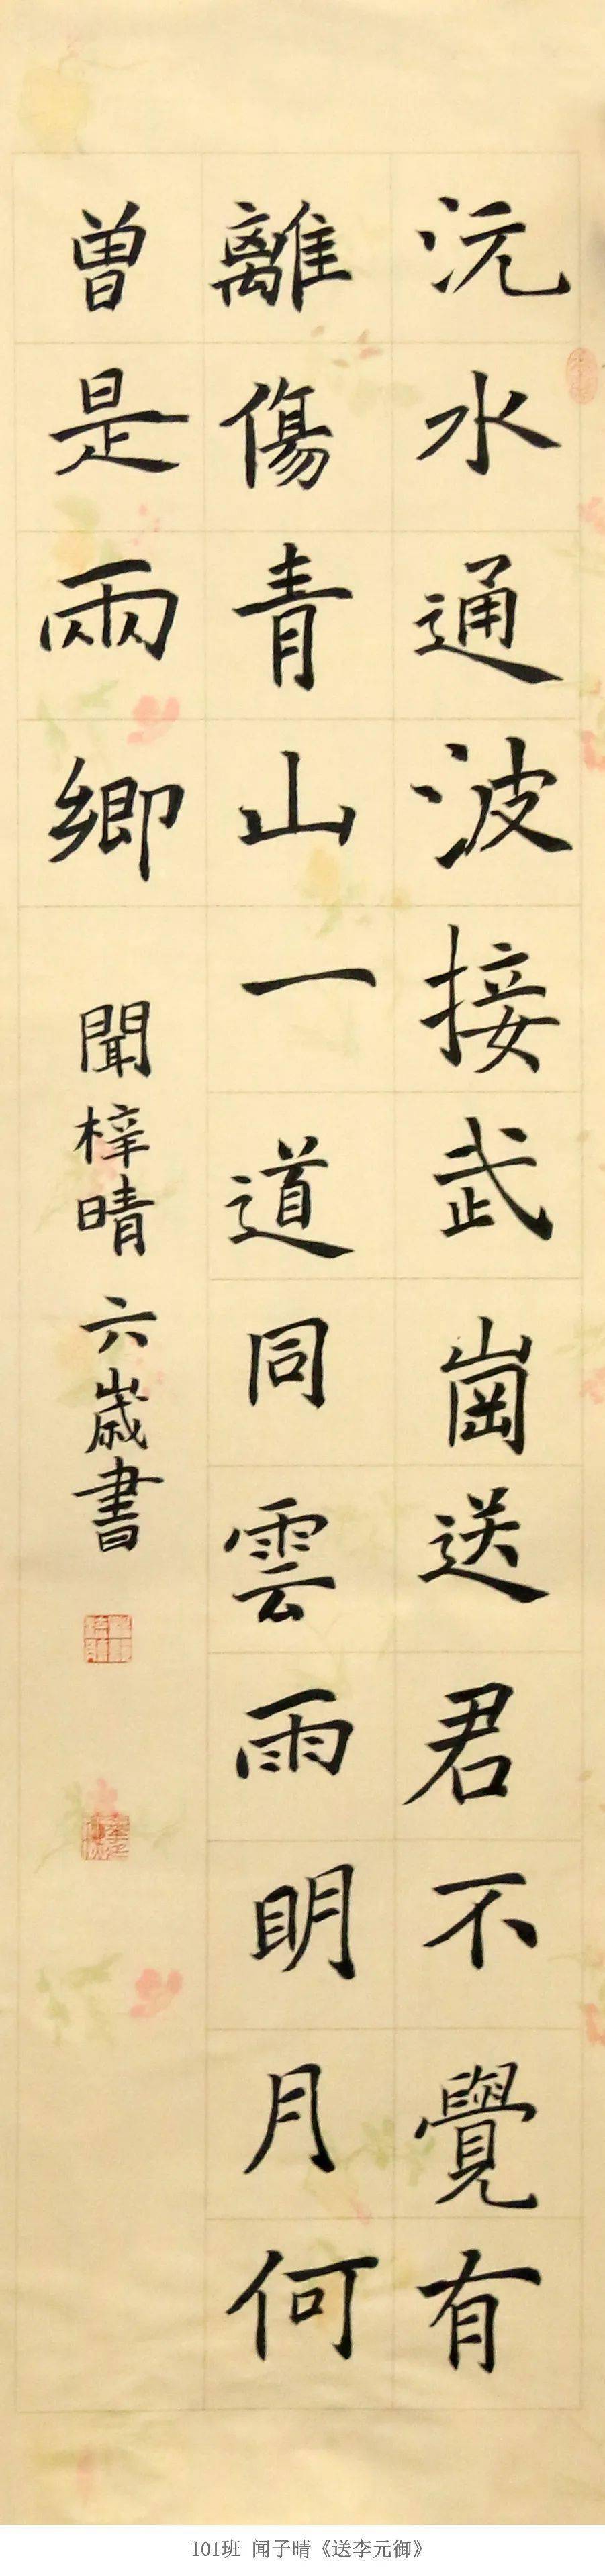 沅水通波接武崗送君不覺有
離傷青山一道同雲雨明月何
曽是兩鄉
聞梓晴 六歲書
101班 闻子晴《送李元御》